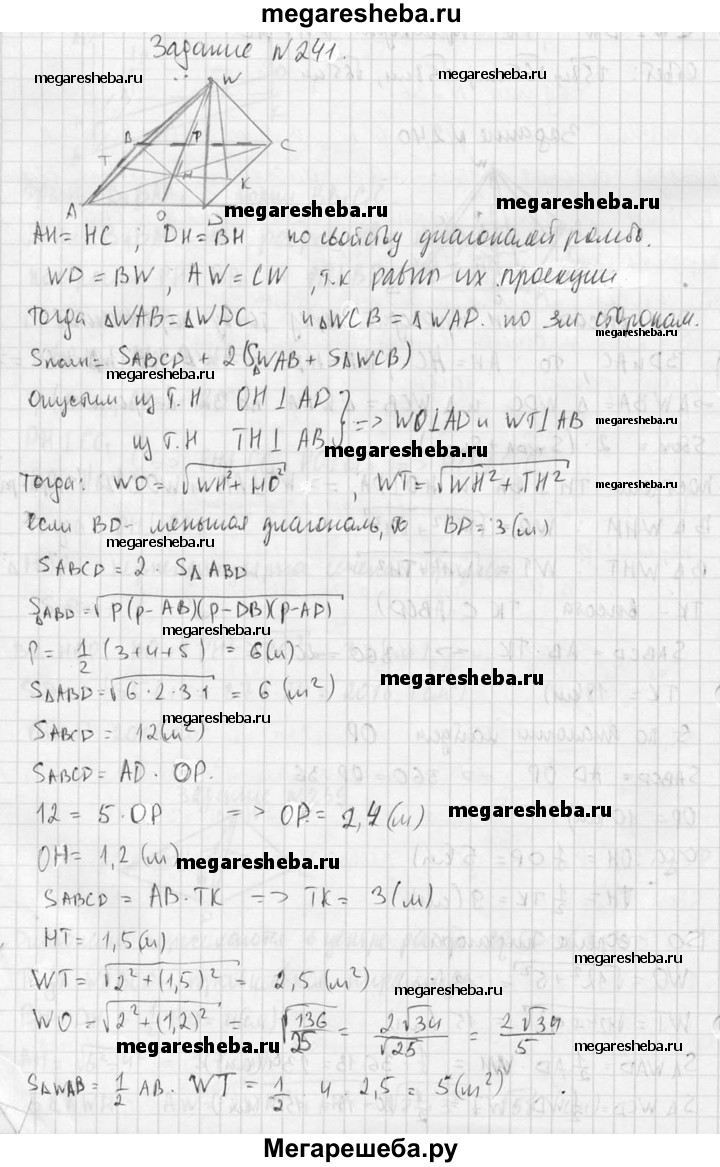 megaresheba.ru
Задание №241.
megaresheba.ru megaresheba.ru
W
B P C
T H K
A O D
megaresheba.ru megaresheba.ru
AH = HC ; DH = BH по свойству диагоналей ромба.
WD = BW, AW = CW, т.к равны их проекции
megaresheba.ru
Тогда △WAB = △WDC и △WCB = △WAD. по 3м сторонам.
Sполн = SABCD + 2(SWAB + S△WCB)
megaresheba.ru
Опустим из т.H OH ⊥ AD
из т.H TH ⊥ AB } => WO⊥AD и WT⊥AB
megaresheba.ru
Тогда: WO = √WH²+HO², WT = √WH² + TH²
megaresheba.ru
Если BD - меньшая диагональ, то BD = 3 (м)
megaresheba.ru
SABCD = 2 · S△ABD
S△ABD = √p(p-AB)(p-DB)(p-AD)
megaresheba.ru
P = 1/2 (3+4+5) = 6(м)
megaresheba.ru
S△ABD = √6·2·3·1 = 6 (м²)
megaresheba.ru
SABCD = 12(м²)
SABCD = AD · OP.
12 = 5·OP => OP = 2,4 (м)
megaresheba.ru
OH = 1,2 (м)
megaresheba.ru
SABCD = AB·TK => TK = 3 (м)
HT = 1,5(м)
megaresheba.ru
WT = √2²+(1,5)² = 2,5 (м²)
megaresheba.ru
WO = √2²+(1,2)² = √136/25 = 2√34/√25 = 2√34/5
megaresheba.ru megaresheba.ru
S△WAB = 1/2 AB · WT = 1/2 4 2,5 = 5(м²)
megaresheba.ru
Мегарешеба.ру